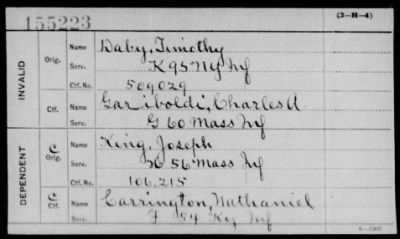 155223
(3-H-4)
INVALID
Orig.
Name
Daby, Timothy
Serv.
K 95 Ny Inf
Ctf. No.
509029
Ctf.
Name
Gariboldi, Charles A
Serv.
G 60 Mass Inf
DEPENDENT
C
Orig.
Name
King, Joseph
Serv.
56 Mass Inf
Ctf. No.
106,215
C
Ctf.
Name
Carrington, Nathaniel
Serv.
F 54 Ky Inf